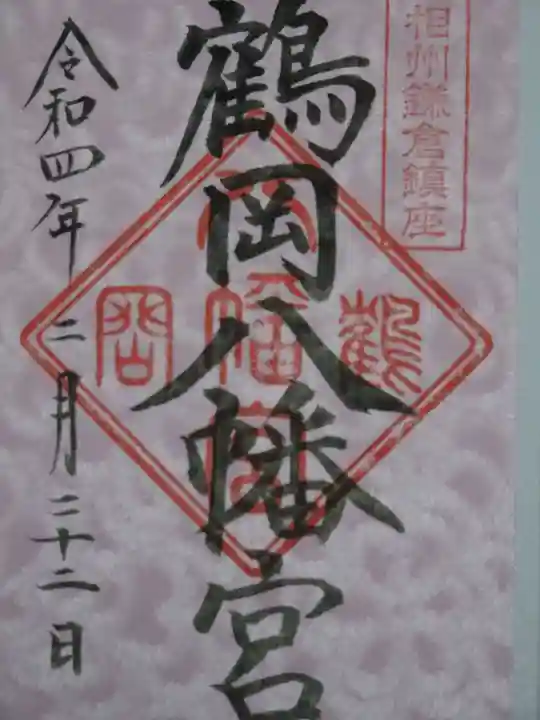 相州鎌倉鎮座
鶴岡八幡宮
鶴
八幡宮
岡
令和四年二月二十二日